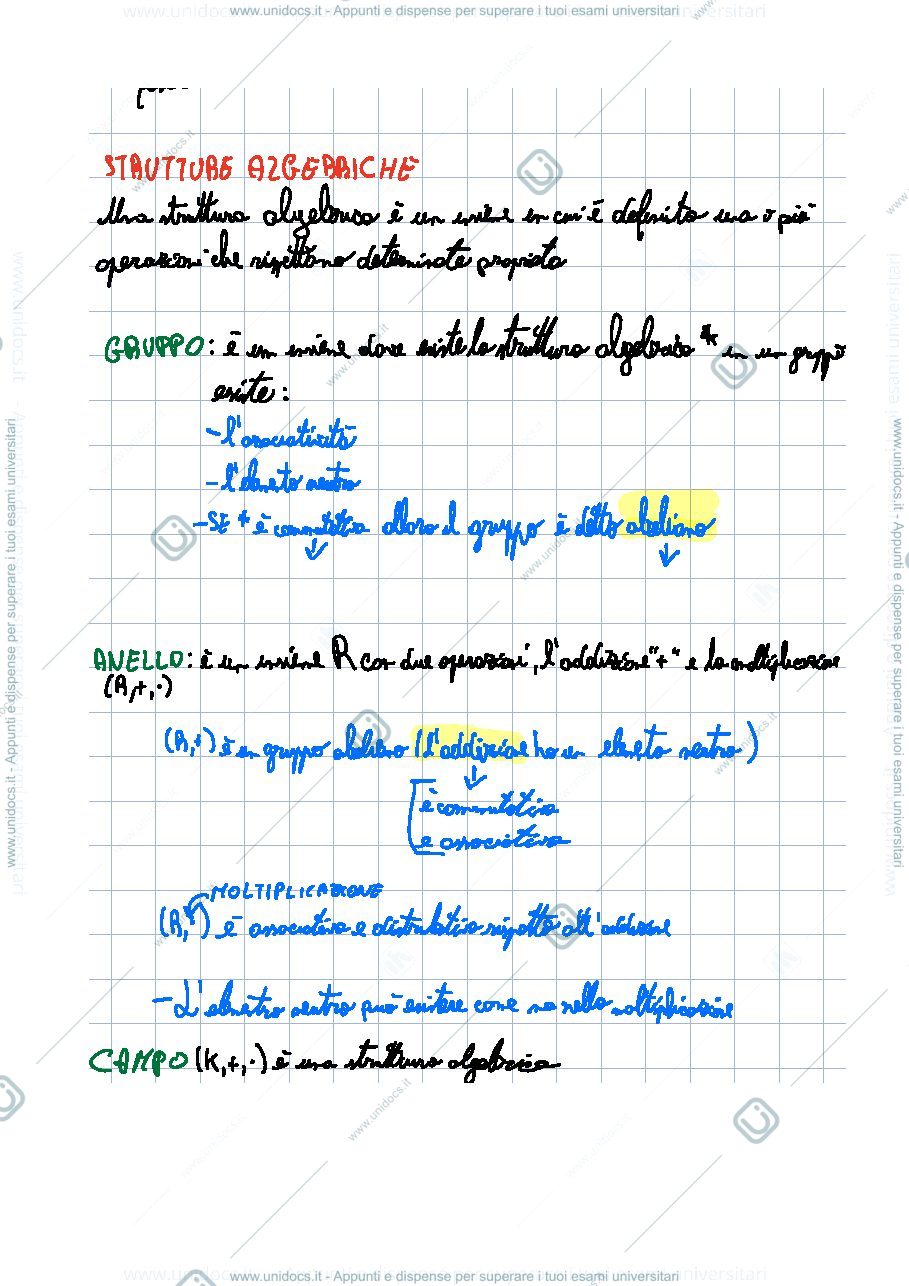 www.unidocs.it - Appunti e dispense per superare i tuoi esami universitari
STRUTTURE ALGEBRICHE
Una struttura algebrica è un insieme in cui è definita una o più
operazioni che rispettano determinate proprietà
GRUPPO: è un insieme dove esiste la struttura algebrica * in un gruppo
esiste:
- l'associatività
- l'elemento neutro
- SE * è commutativa allora il gruppo è detto abeliano
ANELLO: è un insieme R con due operazioni, l'addizione "+" e la moltiplicazione
(R,+,·)
(R,+) è un gruppo abeliano (L'addizione ha un elemento neutro)
è commutativa
e associativa
MOLTIPLICAZIONE
(R,·) è associativa e distributiva rispetto all'addizione
- L'elemento neutro può esistere come no nella moltiplicazione
CAMPO (K,+,·) è una struttura algebrica
www.unidocs.it - Appunti e dispense per superare i tuoi esami universitari